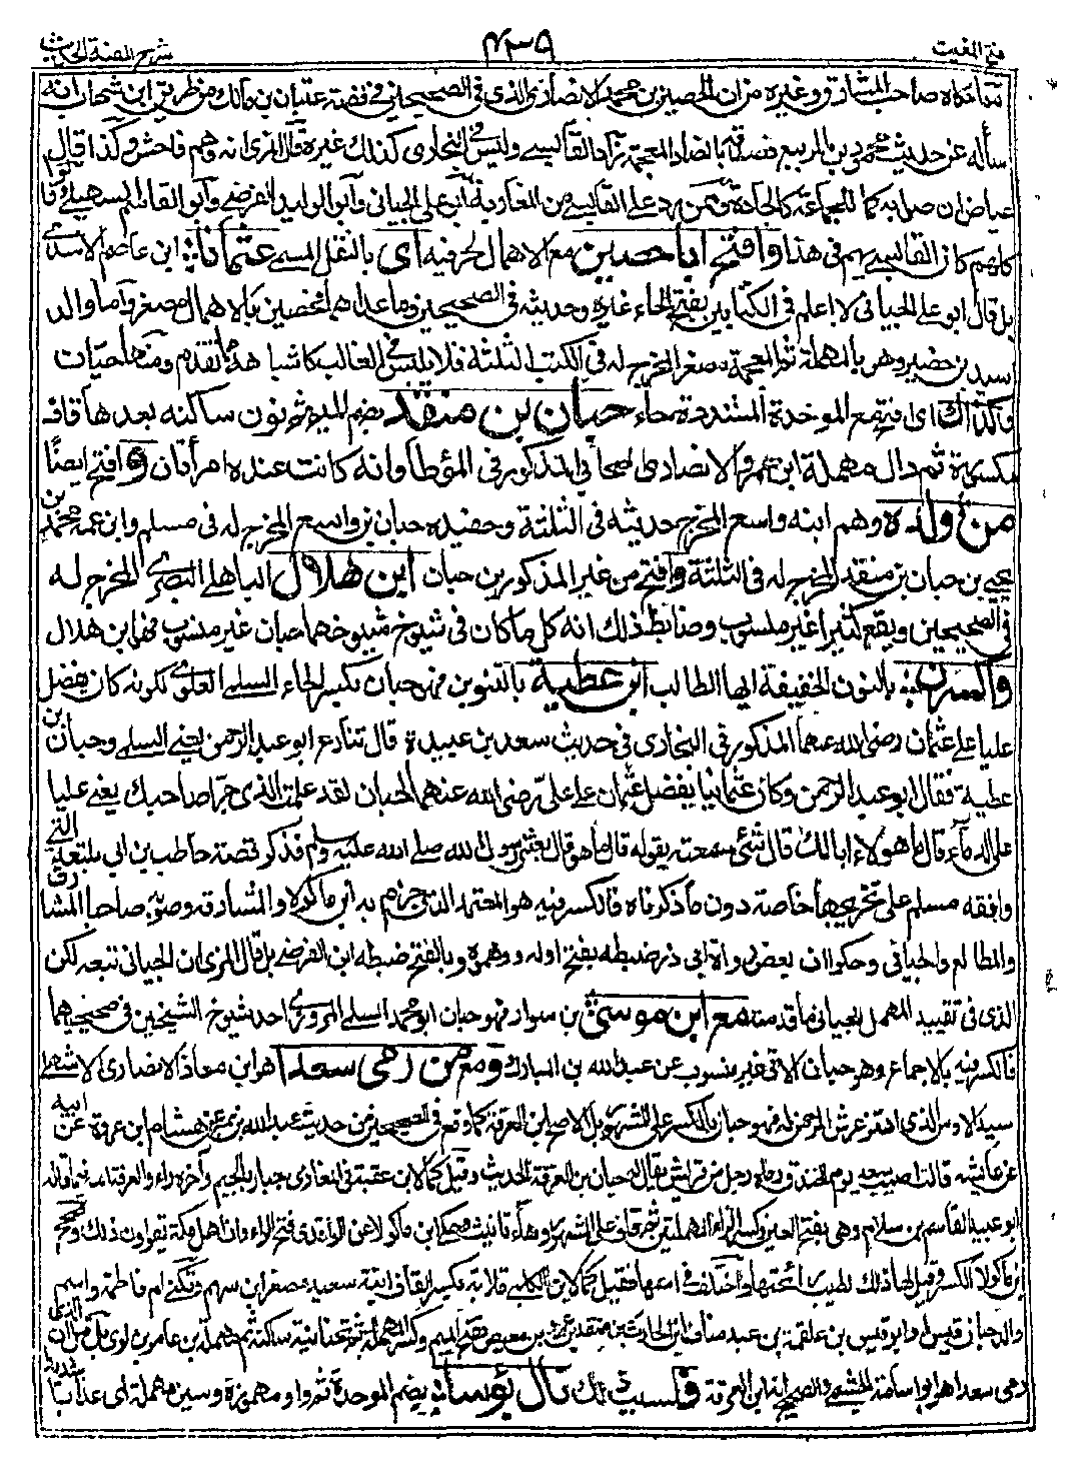 فتح المغيث
۴۳۹
شرح الفية الحديث
ما حكاه صاحب المشارق وغيره من ان الحصين بن محمد الانصاري الذي في الصحيحين في قصة عتبان بن مالك من طريق ابن شهاب انه
سأله عن حديث محمود بن الربيع فصدقه بالضاد المعجمة زاد القابسي وليس في البخاري كذلك غيره قال المزي انه وهم فاحش وكذا قال
عياض ان صوابه كما للجماعة كالجادة وممن رد على القابسي من المغاربة ابو علي الجياني وابو الوليد الفرضي وابو القاسم السهيلي قالوا
كلهم كان القابسي يهم في هذا وافتح ابا حصين مع الاهمال لحرفيه اي بالنقل المسمى عثمانا ابن عاصم الاسدي
بل قال ابو علي الجياني لا اعلم في الكتابين بفتح الحاء غيره وحديثه في الصحيحين وما عداهما فحصين بالاهمال مصغر واما والد
اسيد بن حضير وهو بالمهملة ثم المعجمة مصغر المخرج له في الكتب الثلثة فلا يلتبس في الغالب كاشباهه مما تقدم ومنها حبان
وكذاك اي افتح مع الموحدة المشددة حاء حبان بن منقد بضم الميم ثم نون ساكنه بعدها قاف
مكسورة ثم دال مهملة ابن عمرو الانصاري الصحابي المذكور في المؤطا وانه كانت عنده امرأتان و افتح ايضا
من ولده وهم ابنه واسع المخرج حديثه في الثلثة وحفيده حبان بن واسع المخرج له في مسلم وابن عمه محمد بن
يحيى بن حبان بن منقد المخرج له في الثلثة وافتح من غير المذكورين حبان ابن هلال الباهلي البصري المخرج له
في الصحيحين ويقع كثيرا غير منسوب وضابط ذلك انه كل ما كان في شيوخ شيوخهما حبان غير منسوب فهو ابن هلال
واكسرن بالنون الخفيفة ايها الطالب ابن عطية بالتنوين فهو حبان بكسر الحاء السلمي العلوي لكونه كان يفضل
عليا على عثمان رضي الله عنهما المذكور في البخاري في حديث سعد بن عبيدة قال تنازع ابو عبد الرحمن يعني السلمي وحبان ابن
عطية فقال ابو عبد الرحمن وكان عثمانيا يفضل عثمان على علي رضي الله عنهما لحبان لقد علمت الذي جرأ صاحبك يعني عليا
على الدماء قال ما هو لا ابا لك قال شئ سمعته يقوله قال ما هو قال بعثني رسول الله صلى الله عليه وسلم فذكر قصة حاطب بن ابي بلتعة التي
وافقه مسلم على تخريجها خاصة دون ما ذكرناه فالكسر فيه هو المعتمد الذي جزم به ابن ماكولا والمشارقة وصوبه صاحبا المشارق
والمطالع والجياني وحكوا ان بعض رواة ابي ذر ضبطه بفتح اوله ووهموه وبالفتح ضبطه ابن الفرضي بل قال المزي ان الجياني تبعه لكن
الذي في تقييد المهمل للجياني ما قدمته مع ابن موسى بن سوار فهو حبان ابو محمد السلمي المروزي احد شيوخ الشيخين في صحيحيهما
فالكسر فيه بالاجماع وهو حبان الاتي غير منسوب عن عبد الله بن المبارك ومع من رمى سعدا هو ابن معاذ الانصاري الاشهلي
سيد الاوس الذي اهتز عرش الرحمن له فهو حبان بالكسر على المشهور بل الاصح ابن العرقة كما وقع في الصحيحين من حديث عبد الله بن نمير عن هشام ابن عروة عن ابيه
عن عايشة قالت اصيب سعد يوم الخندق رماه رجل من قريش يقال له حبان بن العرقة الحديث وقيل كما لابن عقبة في المغازي جبار بالجيم وآخره راء والعرقة امه فيما قاله
ابو عبيد القاسم بن سلام وهي بفتح العين وكسر الراء المهملتين ثم قاف على المشهور وهاء تانيث وحكى ابن ماكولا عن الواقدي فتح الراء وان اهل مكة يقولون ذلك وصحح
ابن ماكولا الكسر وقيل لها ذلك لطيب رائحتها واختلف في اسمها فقيل كما لابن الكلبي قلابة بكسر القاف ابنة سعيد مصغر ابن سهم وتكنى ام فاطمة واسم
والد حبان قيس او ابو قيس بن علقمة بن عبد مناف ابن الحارث بن منقذ بن عمرو بن معيص بفتح الميم وكسر المهملة ثم تحتانية ساكنة ثم مهملة بن عامر بن لوي بل قيل ان الذي
رمى سعدا هو ابو اسامة الجشمي والصحيح انه ابن العرقة فلسبب ذلك نال بؤسا بضم الموحدة ثم واو مهموزة وسين مهملة اي عذابا شديدا